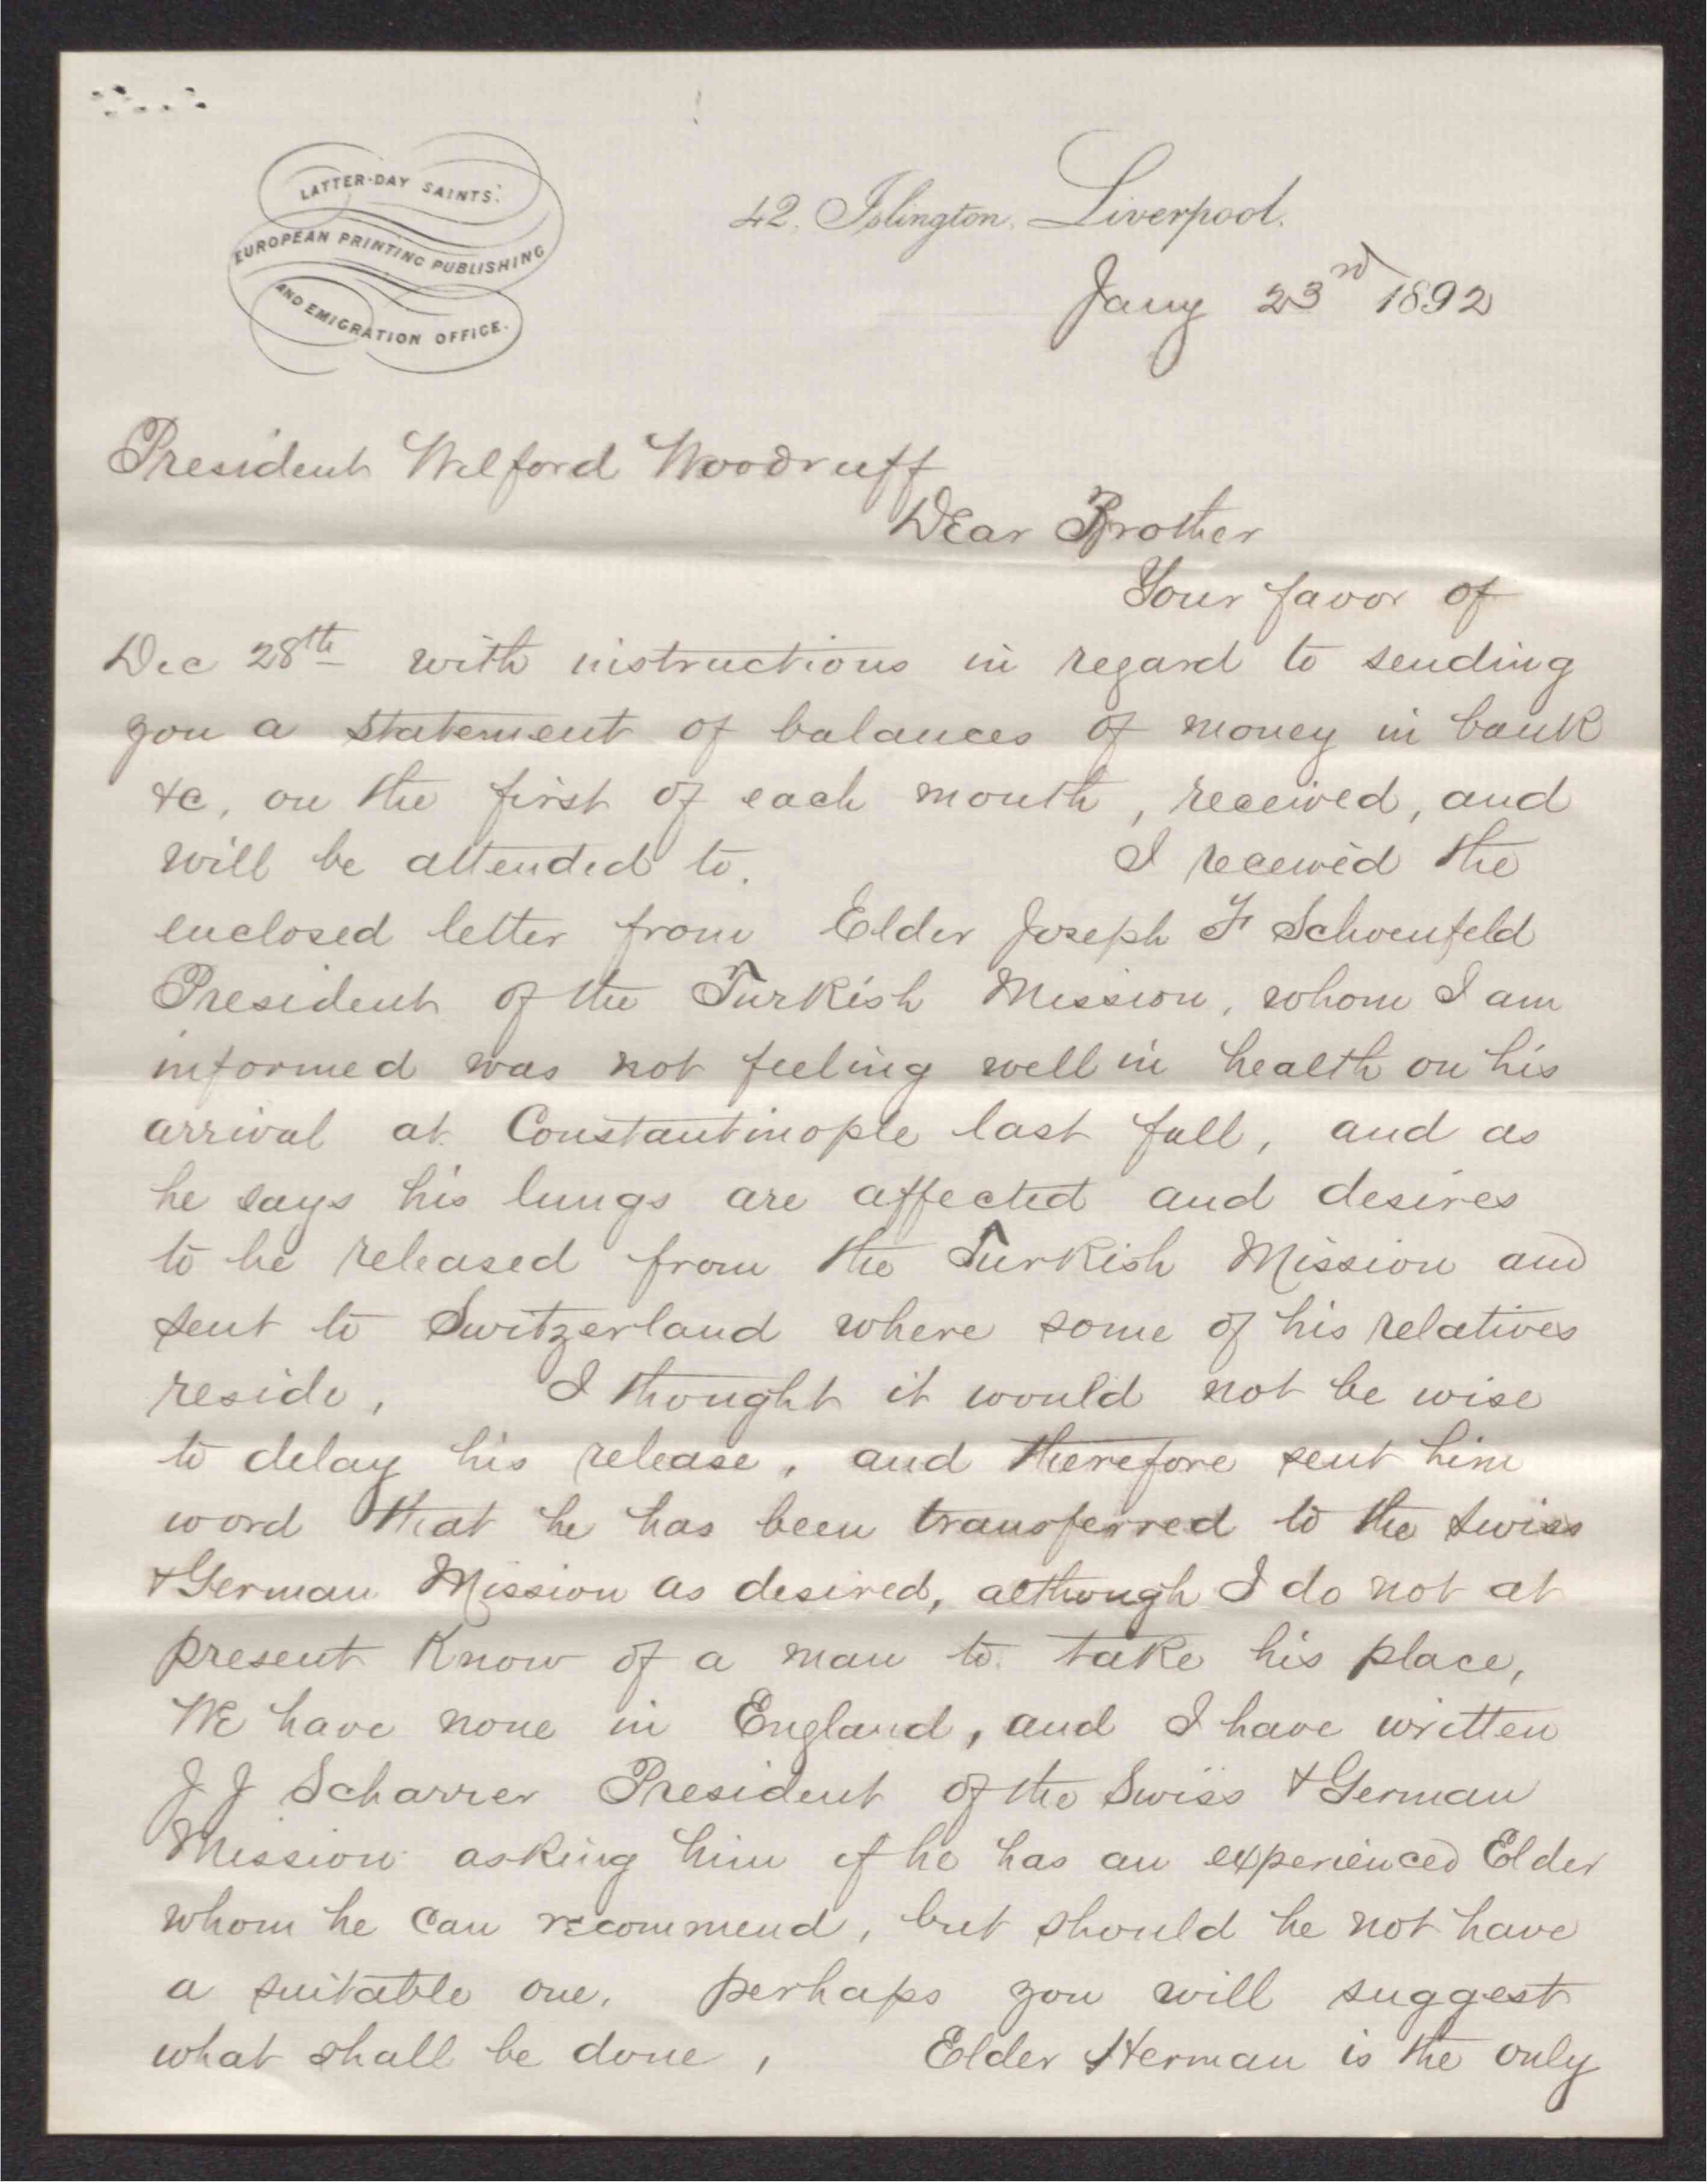 LATTER-DAY SAINTS'
EUROPEAN PRINTING PUBLISHING
AND EMIGRATION OFFICE.
42, Islington, Liverpool.
Jany 23rd 1892
President Wilford Woodruff
Dear Brother
Your favor of
Dec 28th with instructions in regard to sending
you a statement of balances of money in bank
&c, on the first of each month, received, and
will be attended to. I received the
enclosed letter from Elder Joseph F Schoenfeld
President of the Turkish Mission, whom I am
informed was not feeling well in health on his
arrival at Constantinople last fall, and as
he says his lungs are affected and desires
to be released from the Turkish Mission and
sent to Switzerland where some of his relatives
reside, I thought it would not be wise
to delay his release, and therefore sent him
word that he has been transferred to the Swiss
& German Mission as desired, although I do not at
present know of a man to take his place,
We have none in England, and I have written
J J Scharrer President of the Swiss & German
Mission asking him if he has an experienced Elder
whom he can recommend, but should he not have
a suitable one, perhaps you will suggest
what shall be done, Elder Herman is the only